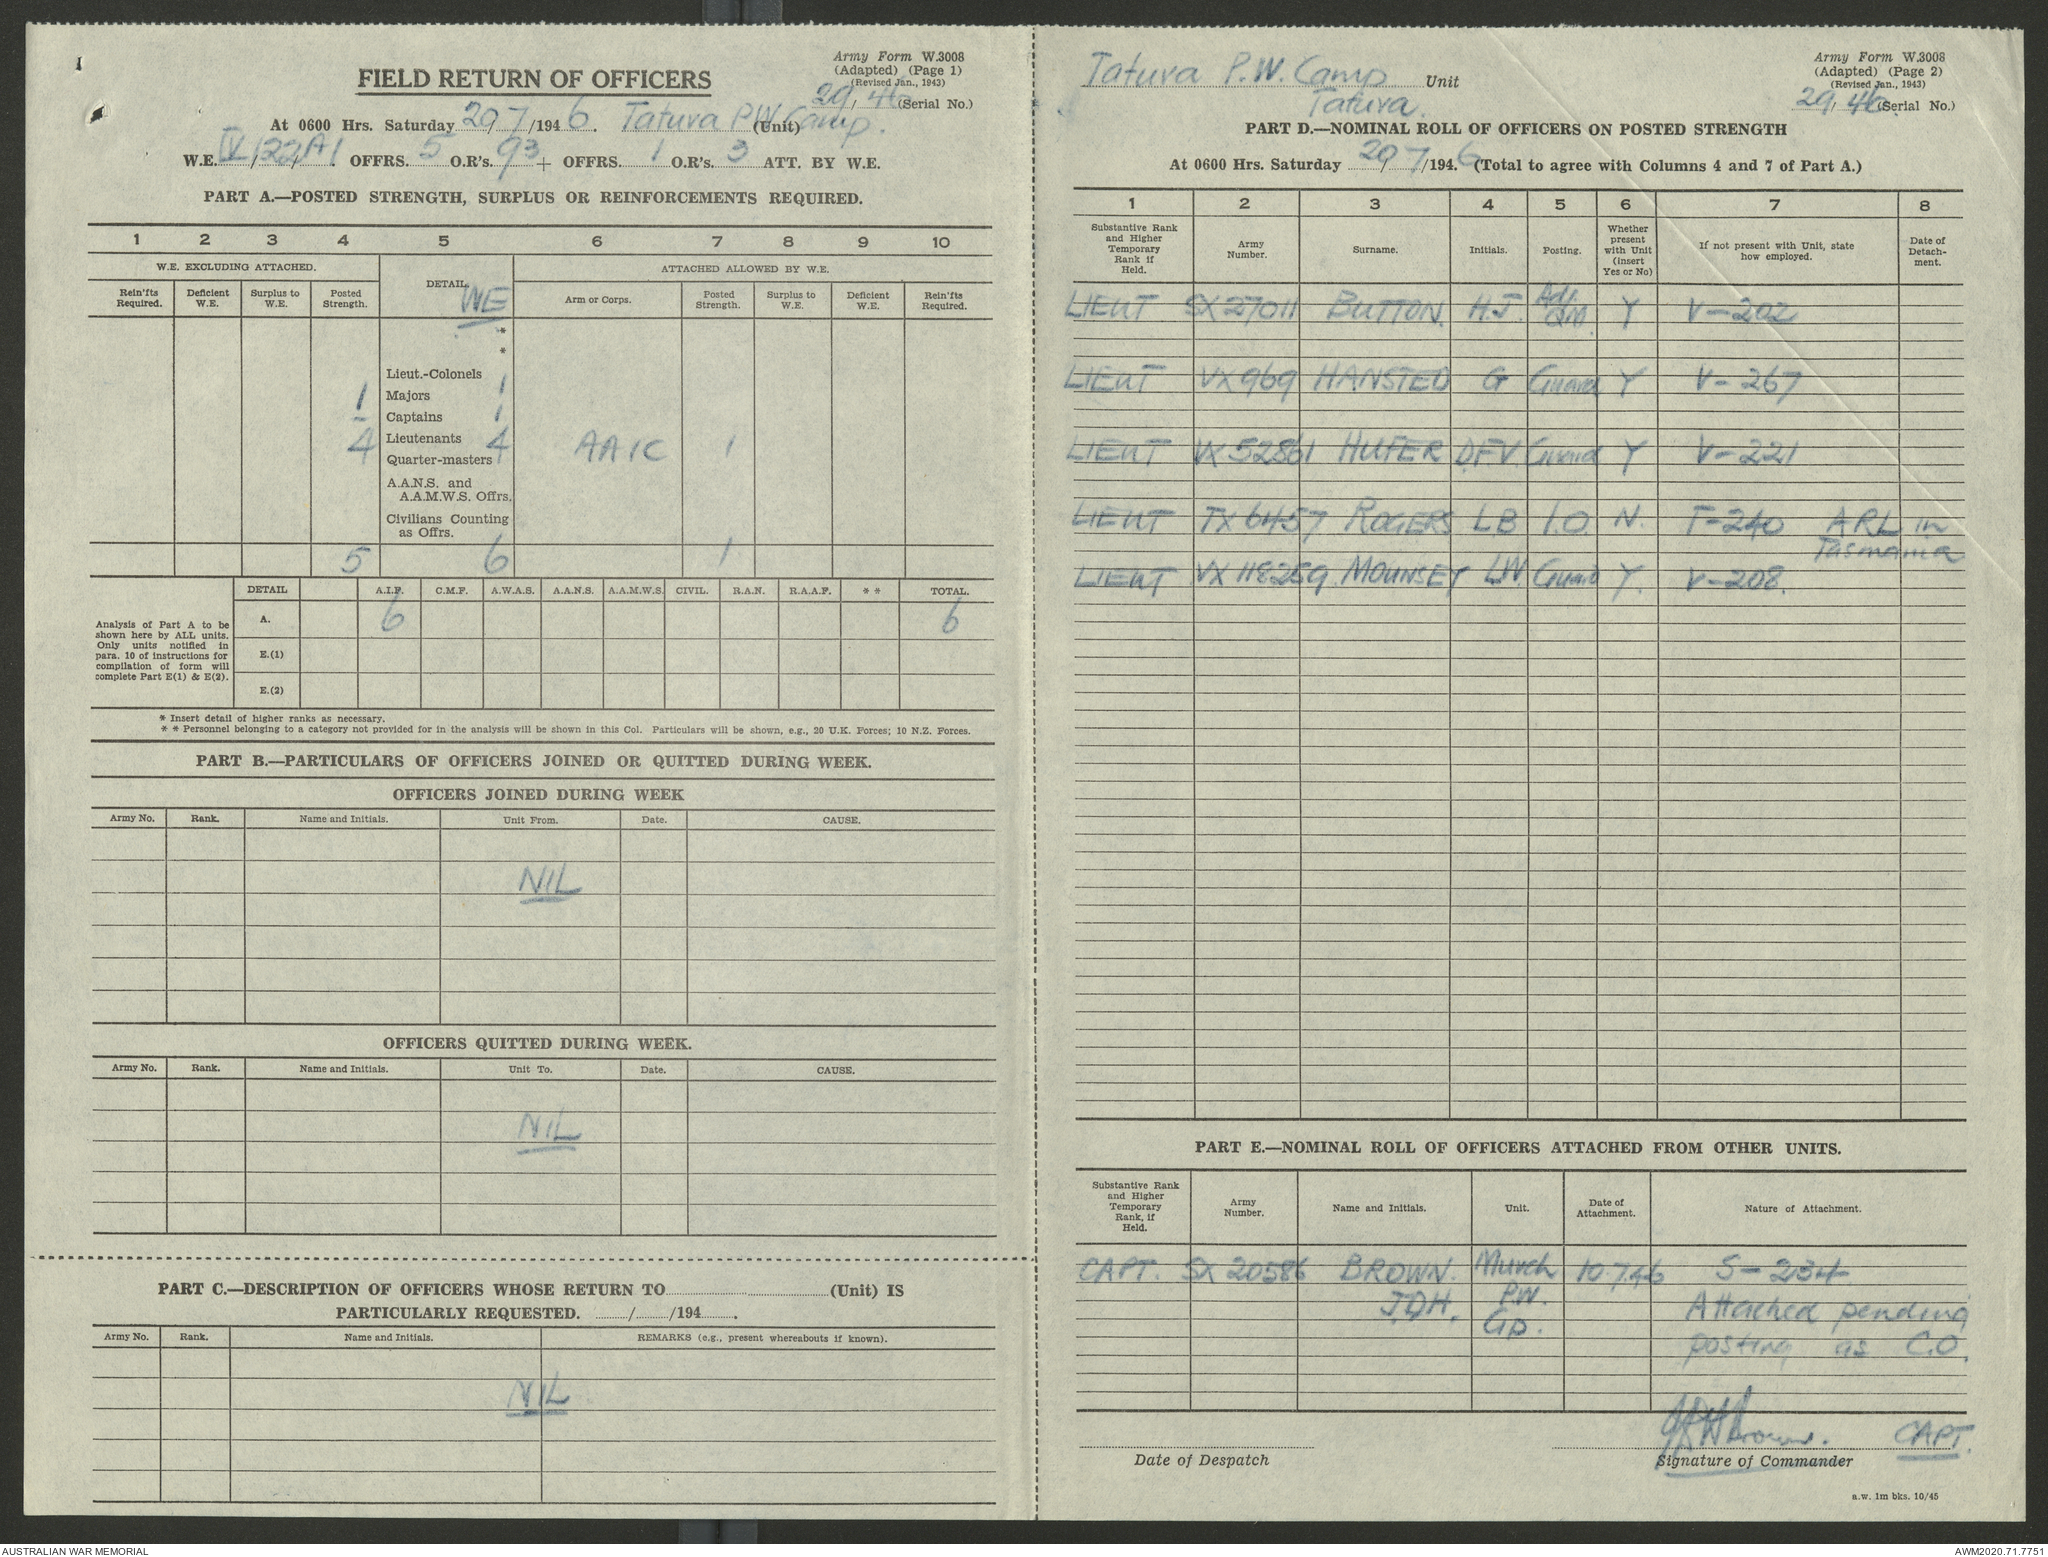 1
Army Form W.3008
(Adapted) (Page 1)
(Revised Jan., 1943)
FIELD RETURN OF OFFICERS
29/46 (Serial No.)
At 0600 Hrs. Saturday 20/7/1946. Tatura P.W. Camp. (Unit)
W.E. IV/122A/1 OFFRS. 5 O.R's. 93 + OFFRS. 1 O.R's. 3 ATT. BY W.E.
PART A.—POSTED STRENGTH, SURPLUS OR REINFORCEMENTS REQUIRED.
1 2 3 4 5 6 7 8 9 10
W.E. EXCLUDING ATTACHED. DETAIL. WE ATTACHED ALLOWED BY W.E.
Rein'fts Required. Deficient W.E. Surplus to W.E. Posted Strength. Arm or Corps. Posted Strength. Surplus to W.E. Deficient W.E. Rein'fts Required.
*
*
Lieut.-Colonels
1 Majors 1
– Captains 1
4 Lieutenants 4 AAIC 1
Quarter-masters
A.A.N.S. and A.A.M.W.S. Offrs.
Civilians Counting as Offrs.
5 6 1
DETAIL A.I.F. C.M.F. A.W.A.S. A.A.N.S. A.A.M.W.S. CIVIL. R.A.N. R.A.A.F. * * TOTAL.
Analysis of Part A to be shown here by ALL units. Only units notified in para. 10 of instructions for compilation of form will complete Part E(1) & E(2).
A. 6 6
E.(1)
E.(2)
* Insert detail of higher ranks as necessary.
* * Personnel belonging to a category not provided for in the analysis will be shown in this Col. Particulars will be shown, e.g., 20 U.K. Forces; 10 N.Z. Forces.
PART B.—PARTICULARS OF OFFICERS JOINED OR QUITTED DURING WEEK.
OFFICERS JOINED DURING WEEK
Army No. Rank. Name and Initials. Unit From. Date. CAUSE.
NIL
OFFICERS QUITTED DURING WEEK.
Army No. Rank. Name and Initials. Unit To. Date. CAUSE.
NIL
PART C.—DESCRIPTION OF OFFICERS WHOSE RETURN TO (Unit) IS
PARTICULARLY REQUESTED. / /194 .
Army No. Rank. Name and Initials. REMARKS (e.g., present whereabouts if known).
NIL
Army Form W.3008
(Adapted) (Page 2)
(Revised Jan., 1943)
Tatura P.W. Camp Unit
Tatura.
29/46 (Serial No.)
PART D.—NOMINAL ROLL OF OFFICERS ON POSTED STRENGTH
At 0600 Hrs. Saturday 20/7/1946 (Total to agree with Columns 4 and 7 of Part A.)
1 2 3 4 5 6 7 8
Substantive Rank and Higher Temporary Rank if Held. Army Number. Surname. Initials. Posting. Whether present with Unit (Insert Yes or No) If not present with Unit, state how employed. Date of Detachment.
LIEUT SX 27011 BUTTON. H.J. Adj QM. Y V-202
LIEUT VX 969 HANSTED G Guard Y V-267
LIEUT VX 52861 HUFER D.F.V. Guard Y V-221
LIEUT TX 6457 ROGERS L B I.O. N. T-240 ARL in Tasmania
LIEUT VX 118259 MOUNSEY LW. Guard Y. V-208.
PART E.—NOMINAL ROLL OF OFFICERS ATTACHED FROM OTHER UNITS.
Substantive Rank and Higher Temporary Rank, if Held. Army Number. Name and Initials. Unit. Date of Attachment. Nature of Attachment.
CAPT. SX 20586 BROWN. Murch 10.7.46 S-234
J.D.H. P.W. Attached pending
Gp. posting as C.O.
JDH Brown. CAPT.
Date of Despatch Signature of Commander
a.w. 1m bks. 10/45
AUSTRALIAN WAR MEMORIAL AWM2020.71.7751